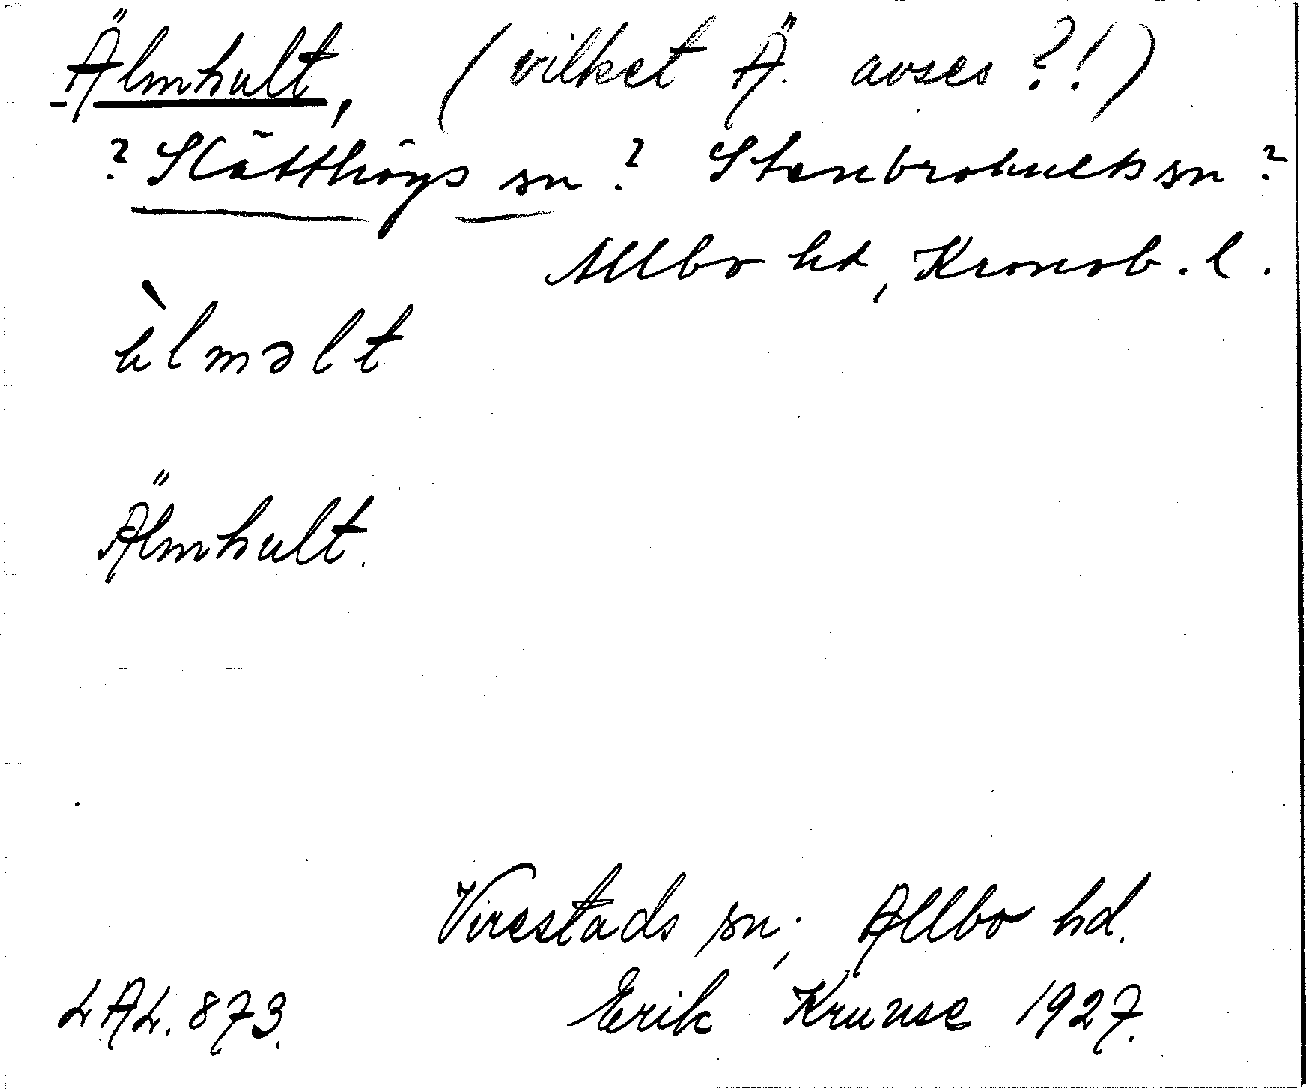 Älmhult, (vilket Ä. avses ?!)
? Slätthögs sn ? Stenbrohults sn ?
Allbo hd, Kronob. l.
Älmhult.
Virestads sn; Allbo hd.
LAL. 873. Erik Kruuse 1927.